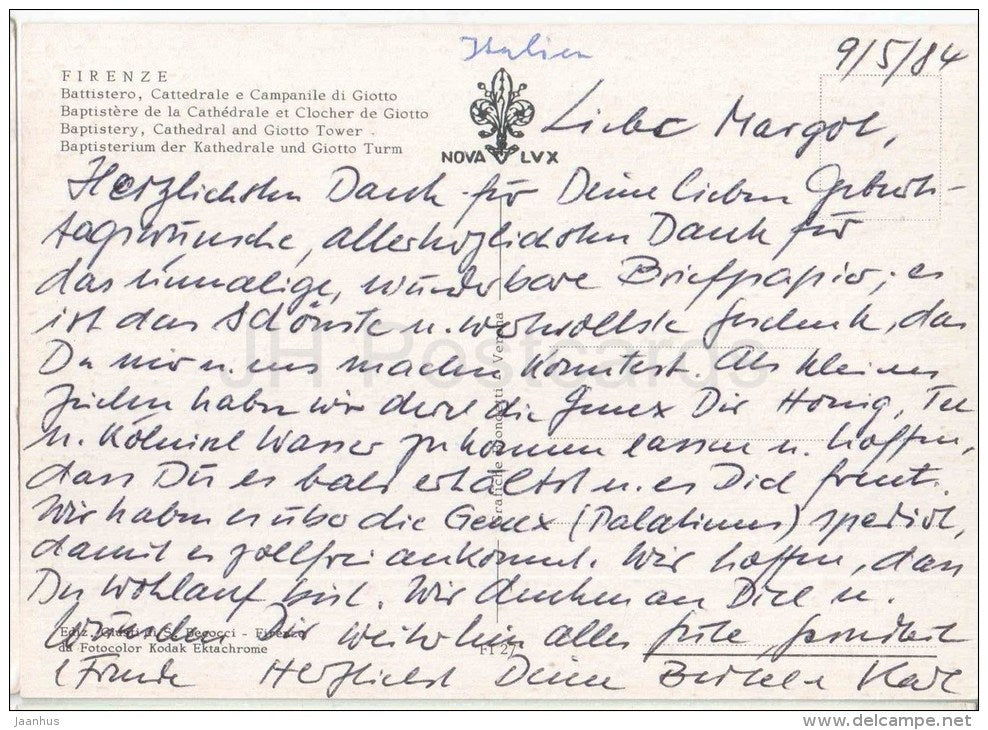 Italien
9/5/84
FIRENZE
Battistero, Cattedrale e Campanile di Giotto
Baptistère de la Cathédrale et Clocher de Giotto
Baptistery, Cathedral and Giotto Tower -
Baptisterium der Kathedrale und Giotto Turm
NOVA LVX
Liebe Margot,
Herzlichsten Dank für Deine lieben Geburts-
tagswünsche, allerherzlichsten Dank für
das einmalige, wunderbare Briefpapier; es
ist das schönste u. wertvollste Geschenk, das
Du mir u. uns machen konntest. Als kleines
Zeichen haben wir durch die Genex Dir Honig, Tee
u. Kölnisch Wasser zukommen lassen u. hoffen,
dass Du es bald erhältst u. es Dich freut.
Wir haben es über die Genex (Palatinus) spediert,
damit es zollfrei ankommt. Wir hoffen, dass
Du wohlauf bist. Wir denken an Dich u.
wünschen Dir weiterhin alles Gute Gesundheit
u Freude Herzlichst Deine Karl
Ediz. Giusti di S. Becocci - Firenze
da Fotocolor Kodak Ektachrome
FI 27
JH Postcards
jaanhus
www.delcampe.net